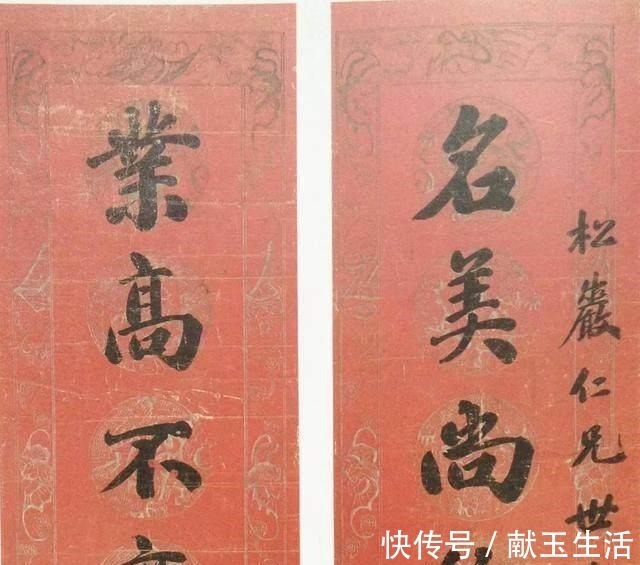 松巖仁兄世
名美尚
業高不
快传号/献玉生活